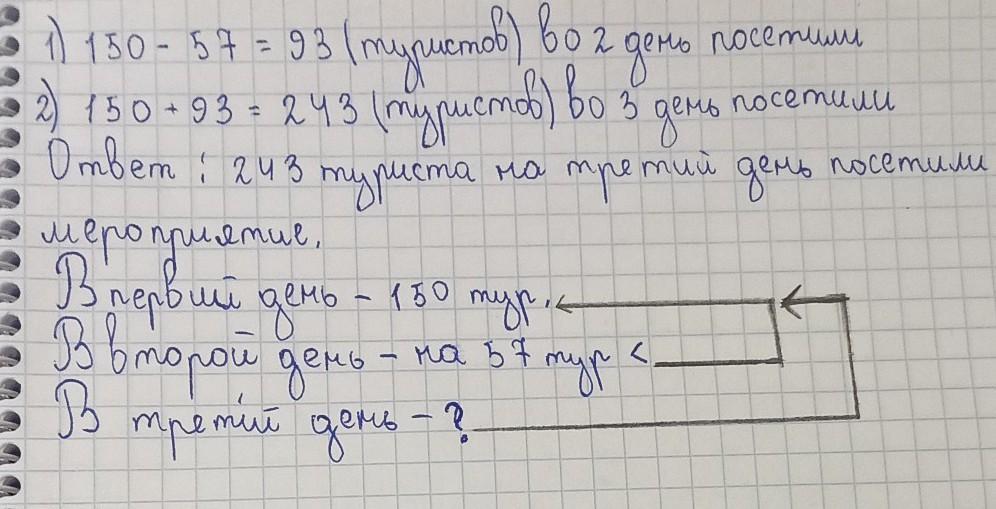 1) 150 - 57 = 93 (туристов) во 2 день посетили
2) 150 + 93 = 243 (туристов) во 3 день посетили
Ответ: 243 туриста на третий день посетили
мероприятие.
В первый день - 150 тур.
В второй день - на 57 тур <
В третий день - ?